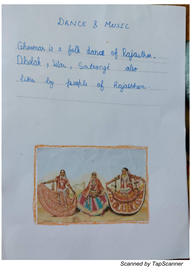 DANCE & MUSIC
Ghoomar is a folk dance of Rajasthan.
Dholak, Sarangi also
like by people of Rajasthan.
Scanned by TapScanner